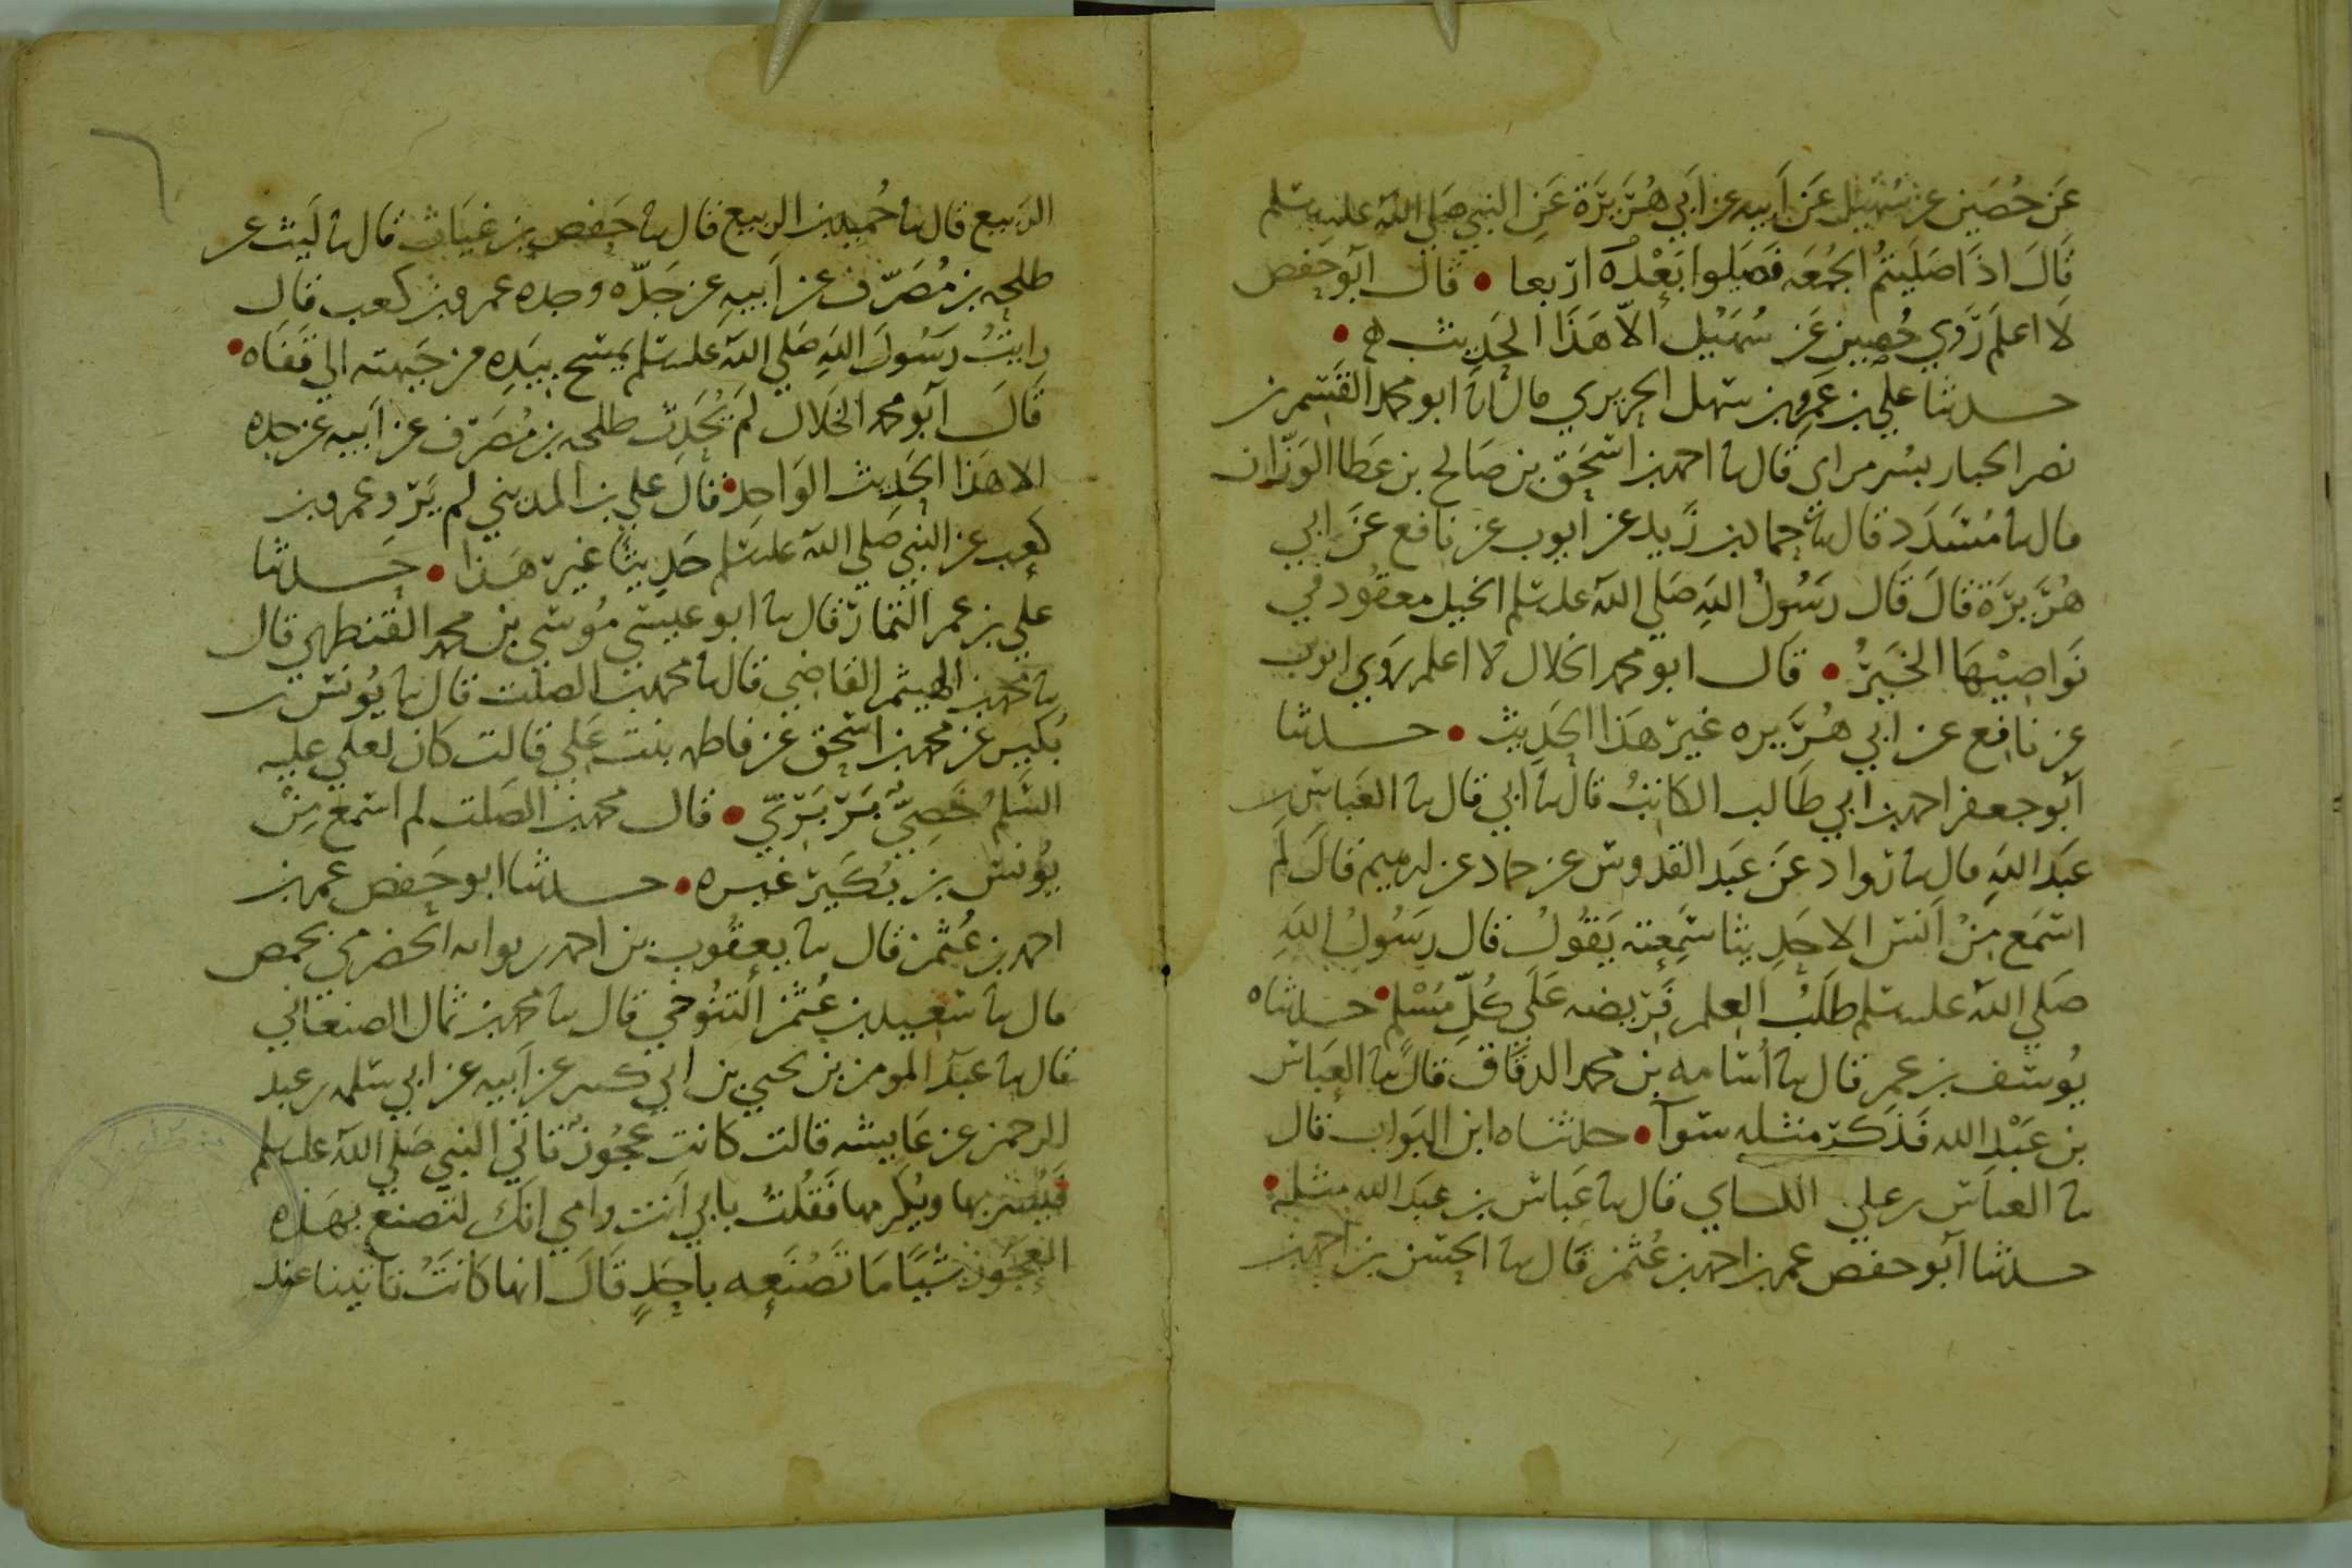 عَن حُصَين عن سُهَيْل عَن أبيه عن أبي هُرَيرَة عَنِ النبي صَلى الله عليه وسلم
قَالَ اذَا صَلَيتمُ الجمُعَه فَصَلوا بَعْدَهَا اربعا • قال أبو حَفص
لا اعلم رَوي حُصين عَن سُهَيْل الاّ هَذا الحَدِيث ه •
حدثنا علي بن عَمرو بن سهل الحريري قال نا ابو محمد القسم بن
نصر الجبار بسُر مراى قال نا احمد بن اسحَق بن صَالح بن عَطا الوَزّان
قال نا مُسَدَد قال نا حماد بن زَيد عن ايوب عن نافع عَن ابي
هُرَيرَة قالَ قَال رَسُولُ اللهِ صَلى الله عليه وسلم الخيل معقُود في
نَوَاصِيْهَا الخَيرُ • قَال ابو محمد الخلال لا اعلم روي ايوب
عن نافع عن ابي هُرَيره غير هَذا الحَدِيث • حدثنا
أبو جعفر احمد بن ابي طَالب الكاتبُ قال نا أبي قال نا العَباس بن
عَبد اللهِ قال نا رَواد عَن عَبد القدوس عن حماد عن ابرهيم قالَ لَم
اسمَع مِنْ أنس الا حَدِيثا سَمِعته يَقُولُ قال رسُولُ اللهِ
صَلي الله عليه وسلم طَلَبُ العلم فَريضه عَلَي كُلِّ مُسْلم • حدثناه
يُوسف بن عمر قال نا أسَامه بن محمد الدقاق قال نا العبَاس
بن عَبْد الله فَذَكَر مثله سَوآ • حدثناه ابن البَواب قال
نا العبَاس بن علي النساي قال نا عَباس بن عبَد الله مثله •
حدثنا أبو حفص عمر بن احمد بن عُثمن قال نا الحسن بن احمد بن
الربيع قال نا حُميد بن الربيع قال نا حَفص بن غيَاث قال نا لَيث عن
طلحه بن مُصَرّف عن أبيهِ عن جَدّه وجده عمرو بن كعب قال
رايتُ رَسُولَ اللهِ صَلي الله عليه وسلم يَمسَح بيَدِهِ من جَبهته الي قَفَاه •
قَالَ أبو محمد الخَلال لَم يُحَدِث طلحه بن مُصَرّف عن أبيه عن جده
الا هَذا الحَدِيث الوَاحِد • قالَ علي بن المديني لم يَرو عمرو بن
كعب عن النبي صَلي الله عليه وسلم حَدِيثًا غير هَذا • حدثنا
علي بن عمر التمار قال نا ابو عيسَي مُوسَي بن محمد القنطري قال
نا محمد بن الهيثم القاضِي قال نا محمد بن الصلت قال نا يُونس بن
بُكَير عن محمد بن اسحق عن فاطمه بنت عَلي قالت كان لعلي عليه
السَلمُ خَصِيّ بَرْبَرِيّ • قال محمد بن الصَلت لم اسمع مِنْ
يوُنس بن بُكَير غيره • حدثنا ابو حَفص عمر بن
احمد بن عُثمن قال نا يعقُوب بن احمد بن ثوابه الحَضرمي بحمص
قال نا سَعيد بن عُثمن التَنُوخي قال نا محمد بن ثمال الصنعاني
قال نا عبد المومن بن يحيي بن ابي كثير عن أبيه عن ابي سلمه بن عبد
الرحمن عن عَايشه قالت كانت عَجُوز تَاتي النبي صَلي الله عليه وسلم
فيُبش بها ويُكرمها فَقُلتُ بابي أنت وامي إنَك لتَصنع بهَذِهِ
العجَوز شَيئًا مَا تَصْنَعه باحَدٍ قَالَ انها كَانَتْ تاتينا عند